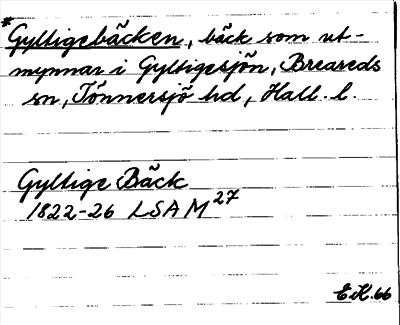 *Gyltigebäcken, bäck som ut-
mynnar i Gyltigesjön, Breareds
sn, Tönnersjö hd, Hall. l.
Gyltige Bäck
1822-26 LSA M 27
E.H. 66